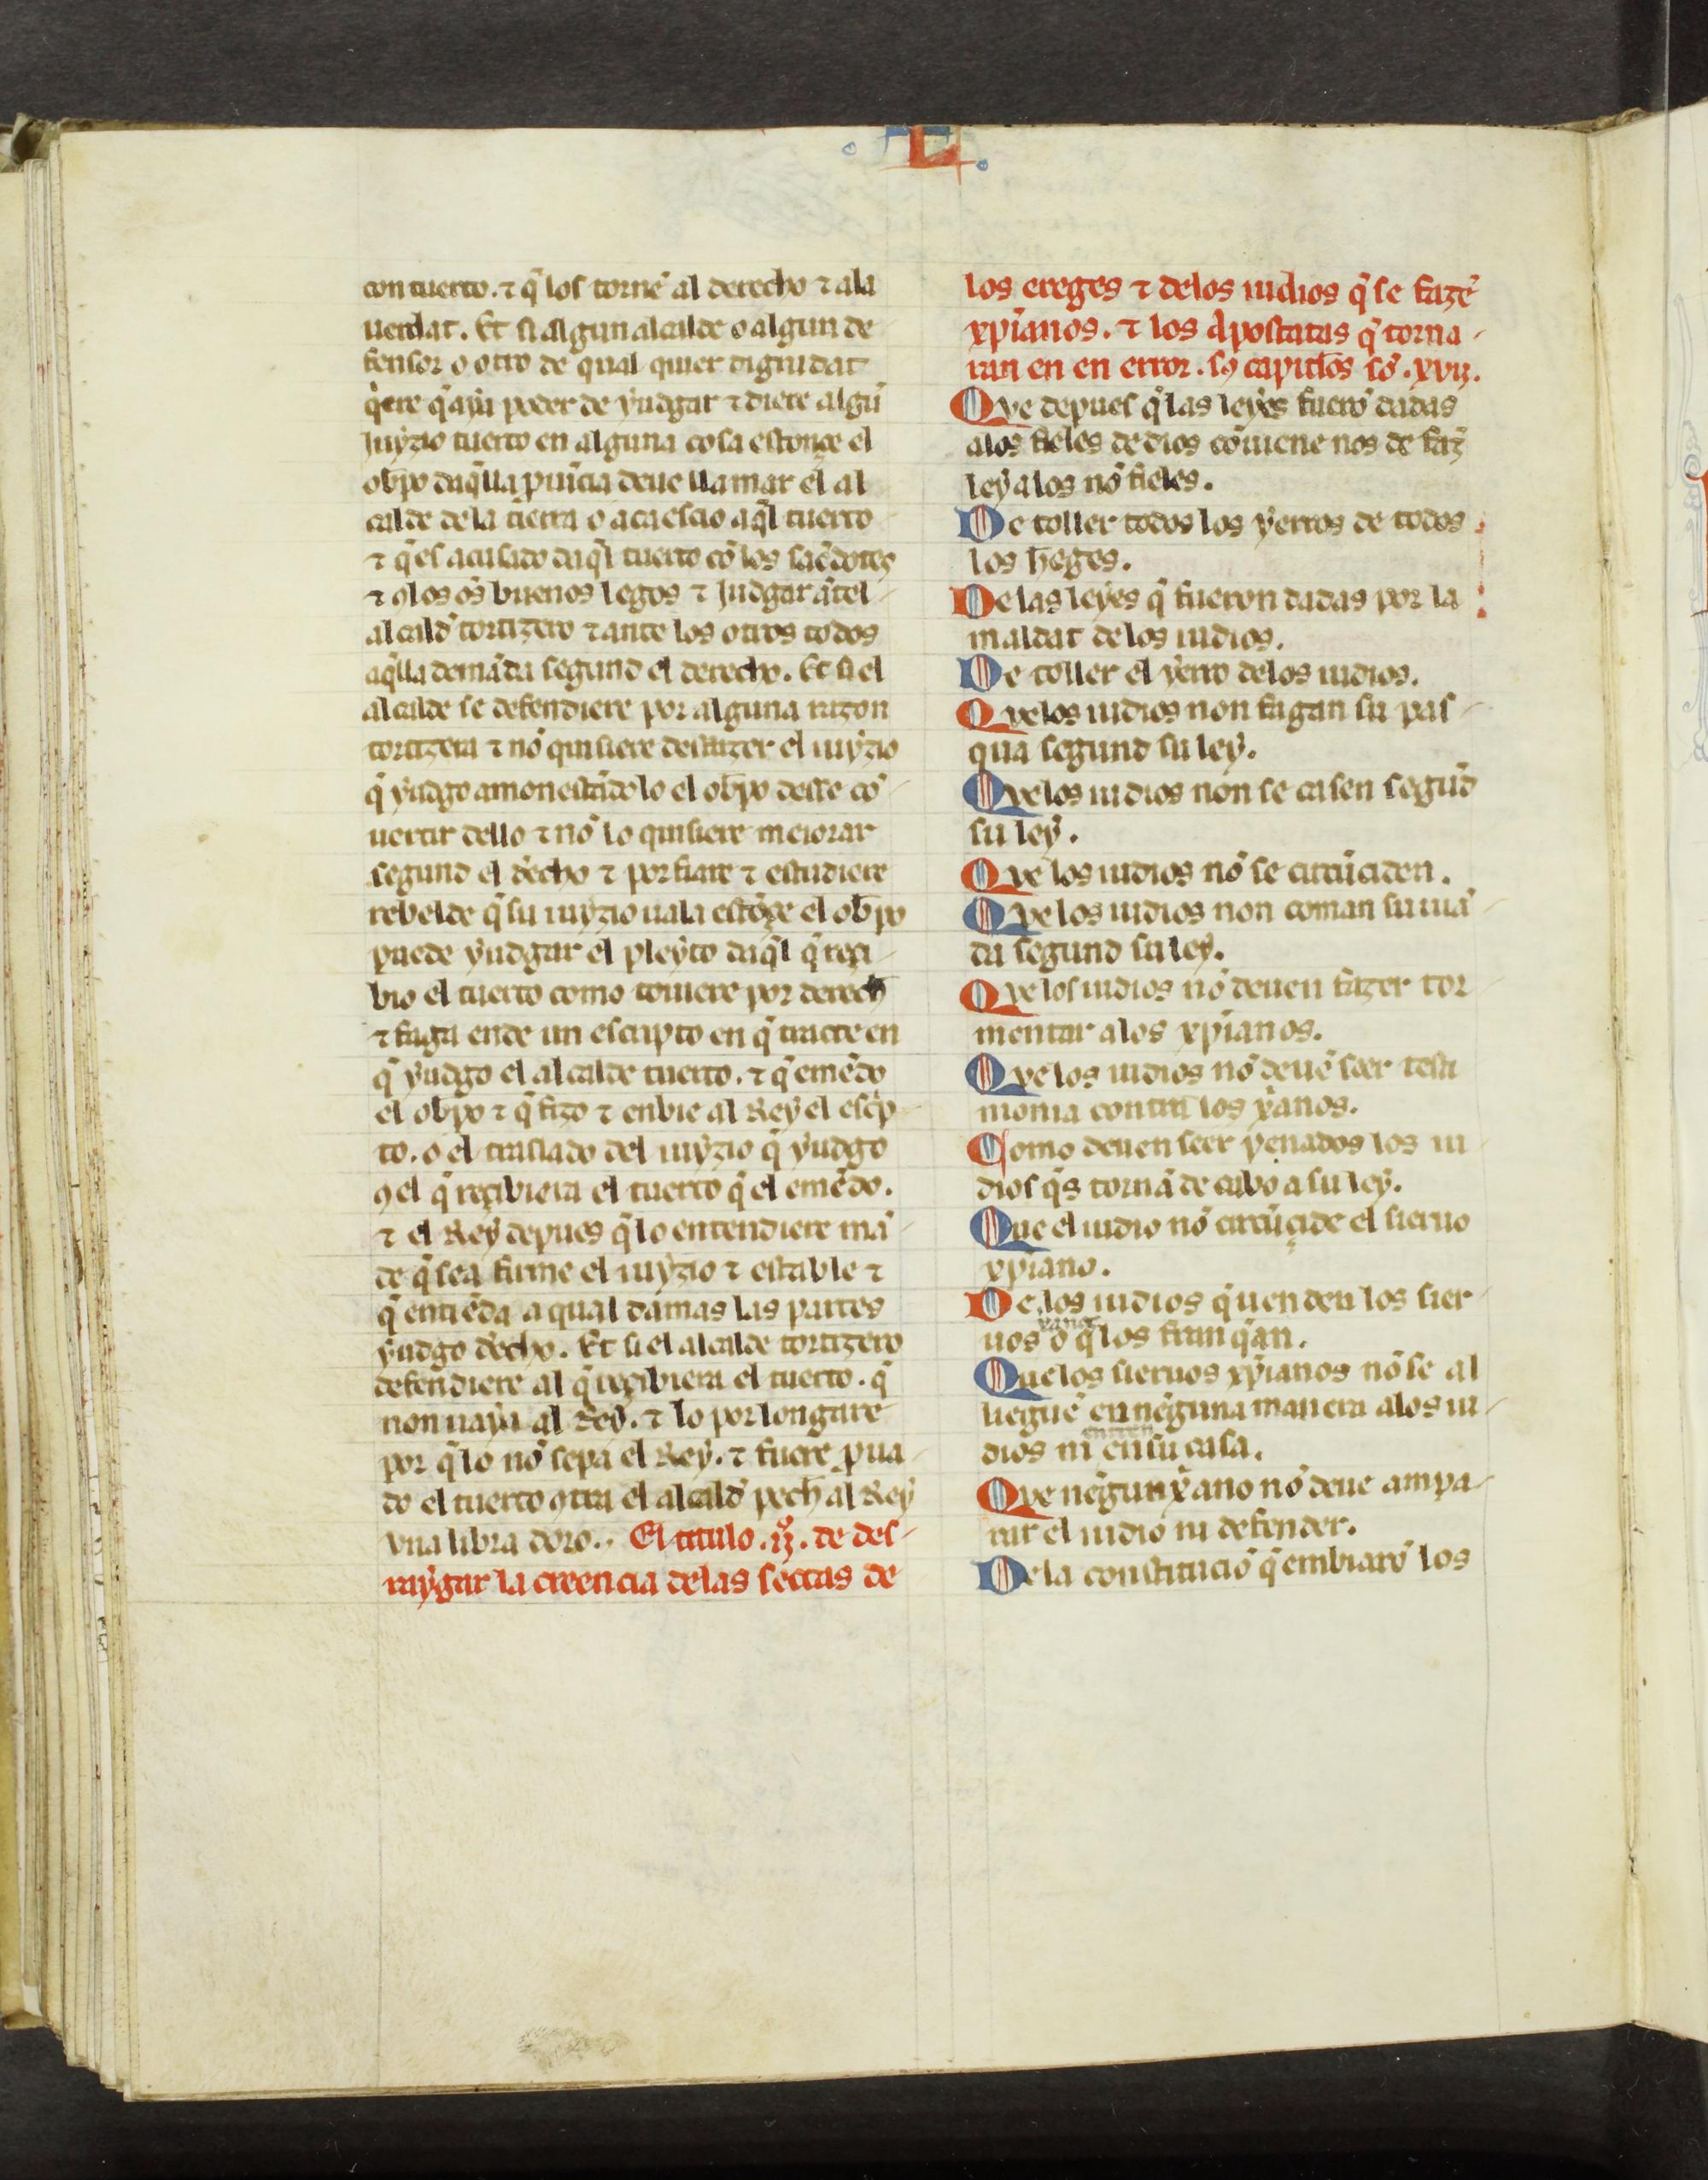 L
con tuerto. ⁊ q̃ los torne͂ al derecho ⁊ ala
uerdat. Et si algun alcalde o algun de
fensor o otro de qual quier dignidat
q̇ere q̃ aya poder de yudgar ⁊ diere algũ
Juyzio tuerto en alguna cosa estonçe el
ob̅po daq̃lla puĩcia deue llamar el al
calde dela tierra o acaescio aq̃l tuerto
⁊ q̃ es acusado daq̃l tuerto cõ los sac̃dotes
⁊ ꝯlos oꝰs buenos legos ⁊ Judgar ãtel
alcald̃ tortizero ⁊ ante los otros todos
aq̃lla demãda segund el derecho. Et si el
alcalde se defendiere por alguna razon
tortizera ⁊ nõ quisiere desfazer el iuyzio
q̃ yudgo amonestãdolo el ob̅po desse cõ
uertir dello ⁊ nõ lo quisiere meiorar
segund el d̃echo ⁊ porfiare ⁊ estudiere
rebelde q̃ su iuyzio uala estõçe el ob̅po
puede yudgar el pleyto daq̃l q̃ reçi
bio el tuerto como touiere por derech̅
⁊ faga ende un escripto en q̃ tracte en
q̃ yudgo el alcalde tuerto. ⁊ q̃ emẽdo
el ob̅po ⁊ q̃ fizo ⁊ enbie al Rey el esc̃p
to. o el traslado del iuyzio q̃ yudgo
ꝯel q̃ reçibiera el tuerto q̃ el emẽdo.
⁊ el Rey depues q̃ lo entendiere mã
de q̃ sea firme el iuyzio ⁊ estable ⁊
q̃ entiẽda a qual damas las partes
yudgo d̃echo. Et si el alcalde tortizero
defendiere al q̃ reçibiera el tuerto. q̃
non uaya al Rey. ⁊ lo porlongare
por q̃ lo nõ sepa el Rey. ⁊ fuere ꝓua
do el tuerto ꝯtra el alcald̃ pech̅ al Rey
vna libra doro.. El titulo .ijº. de des
raygar la creencia delas sectas de
los ereges ⁊ delos iudios q̃ se fazẽ
xp̃ianos. ⁊ los apostatas q̃ torna
ran en en error. sꝯ capitl̃os sõ. xvij.
Qve depues q̃ las leyes fuerõ dadas
alos fieles de dios cõuiene nos de faz̃
ley alos nõ fieles.
De toller todos los yerros de todos
los h̅eges.
De las leyes q̃ fueron dadas por la
maldat de los iudios.
De toller el yerro delos iudios.
Qvelos iudios non fagan su pas
qua segund su ley.
Qvelos iudios non se casen segũd
su ley.
Qve los iudios nõ se circũciden.
Qvelos iudios non coman su uiã
da segund su ley.
Qvelos iudios nõ deuen fazer tor
mentar alos xp̃ianos.
Qvelos iudios nõ deuẽ seer testi
monia contra los x̃anos.
Como deuen seer penados los iu
dios q̃s tornã de cabo a su ley.
Que el iudio nõ circũçide el sieruo
xp̃iano.
Delos iudios q̃ uenden los sier
x̃anos
uos o q̃ los franq̃an.
Quelos sieruos xp̃ianos nõ se al
lieguẽ en nẽguna manera alos iu
entren
dios ni en su casa.
Qve nẽgun x̃ano nõ deue ampa
rar el iudio ni defender.
Dela constitució q̃ embiarõ los